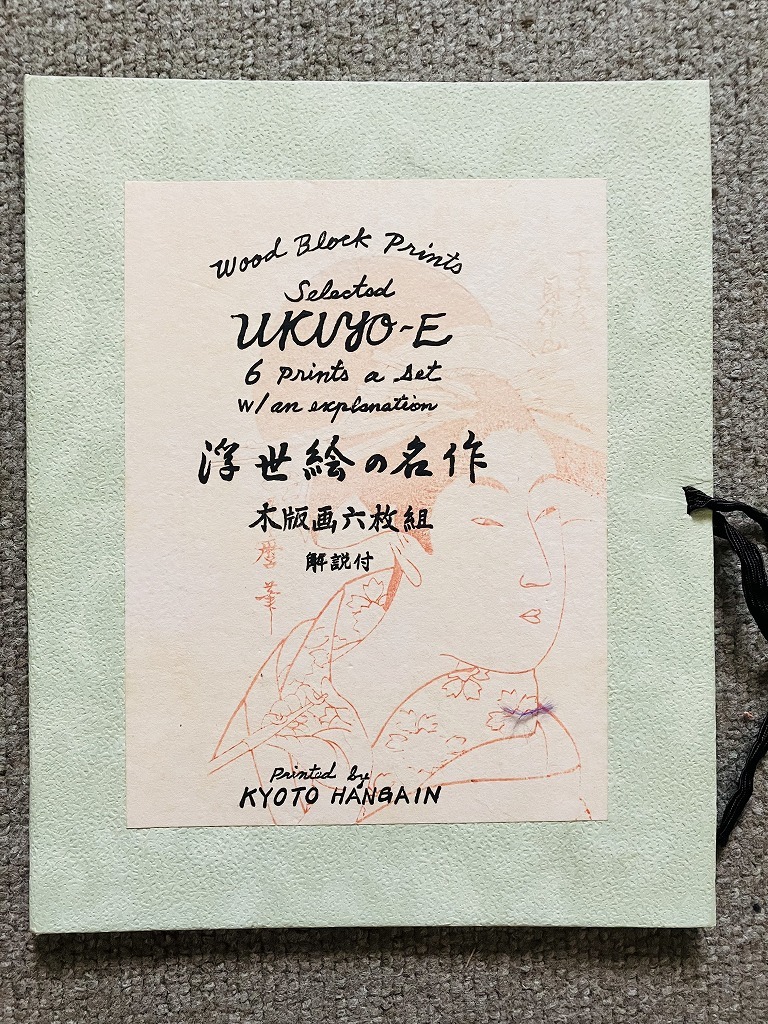 Wood Block Prints
Selected
UKIYO-E
6 prints a set
w/ an explanation
浮世絵の名作
木版画六枚組
解説付
麿筆
Printed by
KYOTO HANGAIN